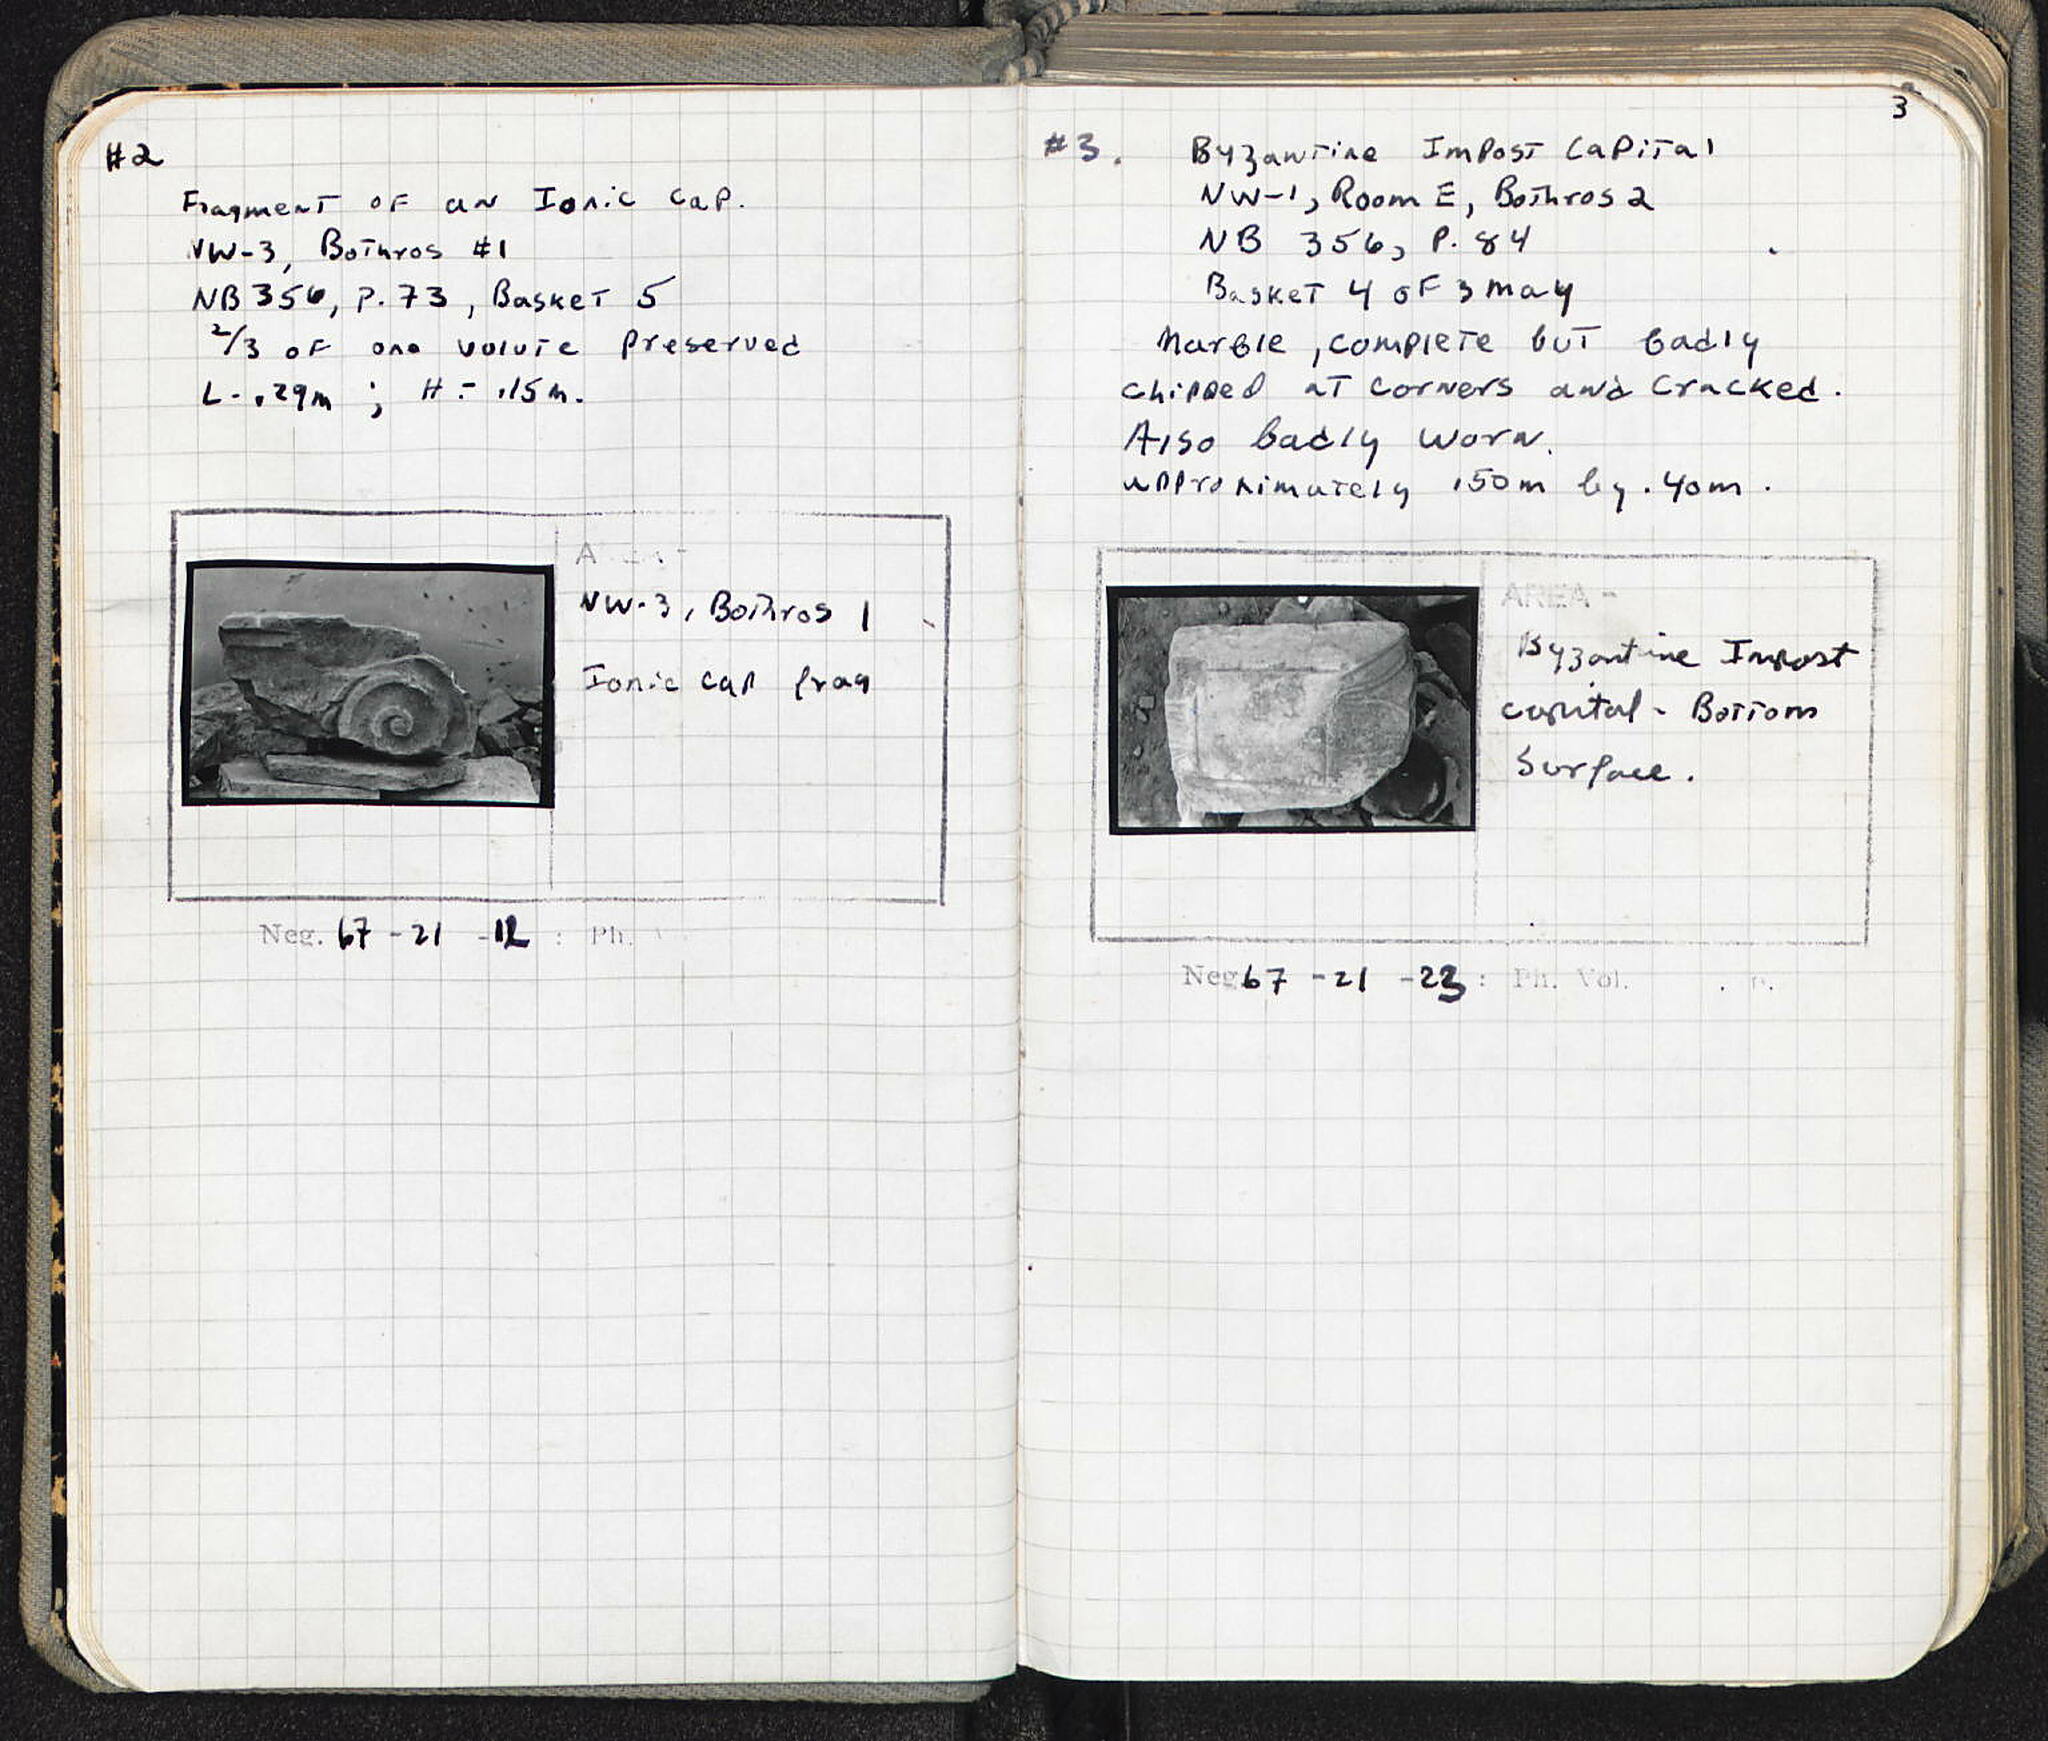 #2
Fragment of an Ionic Cap.
NW-3, Bothros #1
NB 356, P. 73, Basket 5
2/3 of one volute preserved
L- .29m ; H = .15m.
AREA -
NW-3, Bothros 1
Ionic cap frag
Neg. 67 -21 -12 : Ph.
3
#3. Byzantine Impost Capital
NW-1, Room E, Bothros 2
NB 356, P. 84
Basket 4 of 3 may
Marble, complete but badly
chipped at corners and cracked.
Also badly worn.
approximately .50m by .40m.
AREA -
Byzantine Impost
capital - Bottom
Surface.
Neg. 67 -21 -23 : Ph. Vol. . p.